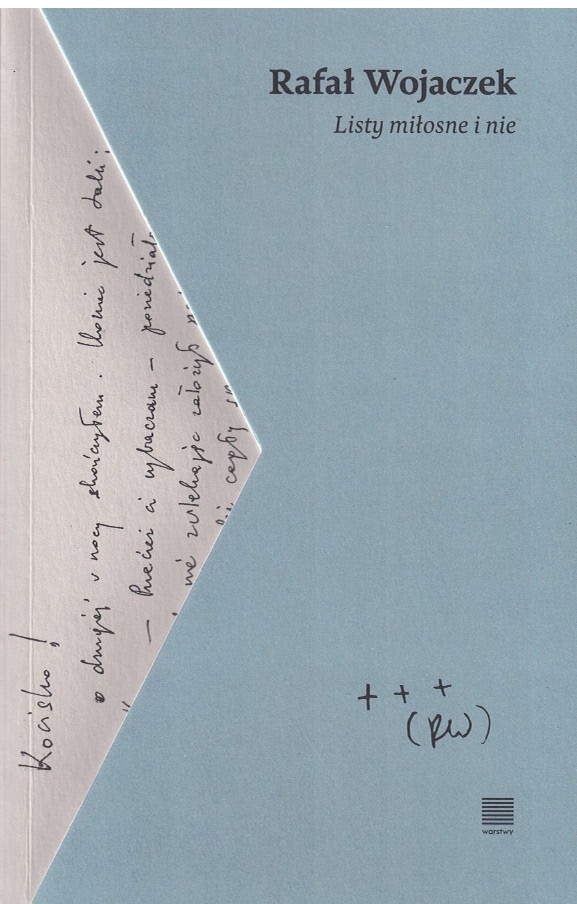 Rafał Wojaczek
Listy miłosne i nie
Kocisko!
o drugiej w nocy skończyłem. Koniec jest taki:
„— Przecież ci wybaczam — powiedział
nie zwlekając założył
ciepły
+ + +
(RW)
warstwy